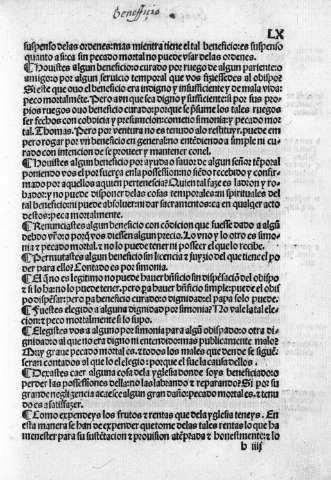 Beneficio
LX
suspenso delas ordenes: mas mientra tiene el tal beneficio: es suspenso
quanto a si: ca sin pecado mortal no puede vsar delas ordenes.
¶ Houistes algun beneficio curado por ruego de algun pariente: o
amigo: o por algun seruicio temporal que vos fiziessedes al obispo:
Si este que ouo el beneficio era indigno y insufficiente y de mala vida:
peco mortalmẽte. Pero avn que sea digno y sufficiente: si por sus pro
pios ruegos ouo beneficio curado: porque se p̃sume los tales ruegos
ser fechos con cobdicia y presuncion: cometio simonia: y peco mortal.
Thomas. Pero por ventura no es tenudo alo restituyr. puede em
pero rogar por vn beneficio en general: no entẽdiendo a simple ni cu
rado con intencion de se proueer y mantener conel.
¶ Houistes algun beneficio por ayuda o fauor de algun señor tẽporal
poniendo vos el por fuerça enla possession: no seẽdo recebido y confir
mado por aquellos a quien pertenescia: Quien tal faze es ladron y ro
bador: y no puede disponer delas cosas temporales: ni spirituales del
tal beneficio: ni puede absoluer: ni dar sacramentos: ca en qualquier acto
destos: peca mortalmente.
¶ Renunciastes algun beneficio con cõdicion que fuesse dado a algũ
debdo vr̃o: o porq̃ vos diessen algun precio. Lo vno y lo otro es simo
nia y pecado mortal. z no lo puede tener ni posseer el que lo recibe.
¶ Permutastes algun beneficio sin licencia z juyzio del que tiene el po
der para ello: Contado es por simonia.
¶ El q̃ no es legitimo no puede hauer bñficio sin dispẽsaciõ del obispo
z si lo ha: no lo puede tener. pero pa hauer bñficio simple: puede el obis
po dispẽsar: pero pa beneficio curado: o dignidad: el papa solo puede.
¶ Fuestes elegido a alguna dignidad por simonia? No vale la tal ele
cion: z peco mortalmente si lo supo.
¶ Elegistes vos a alguno por simonia para algũ obispado: o otra di
gnidad: o al que no era digno ni entendido: mas publicamente malo?
Muy graue pecado mortal es. z todos los males que dende se siguẽ:
seran contados al que lo elegio: porque el fue la causa dellos.
¶ Dexastes caer alguna cosa dela yglesia donde soys beneficiado: o
perder las possessiones della: no las labrando z reparando? Si por su
grande negligencia acaesce algun gran daño: pecado mortal es. z tenu
do es a satisfazer.
¶ Como expendeys los frutos z rentas que dela yglesia teneys. En
esta manera se han de expender: que tome delas tales rentas lo que ha
menester para su sustẽtacion z prouision atẽprada z honestmente: z lo
b iiij